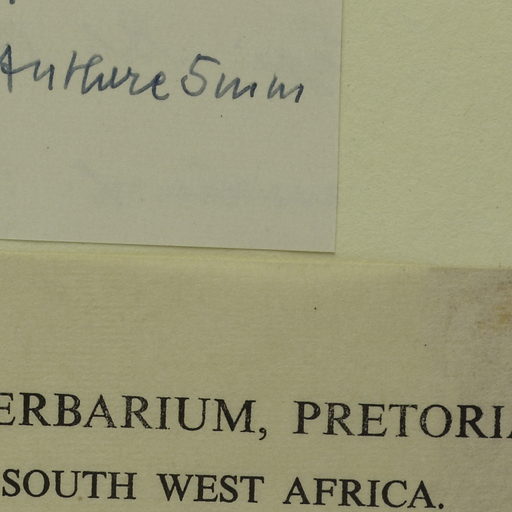 Anthere 5mm
ERBARIUM, PRETORIA
SOUTH WEST AFRICA.